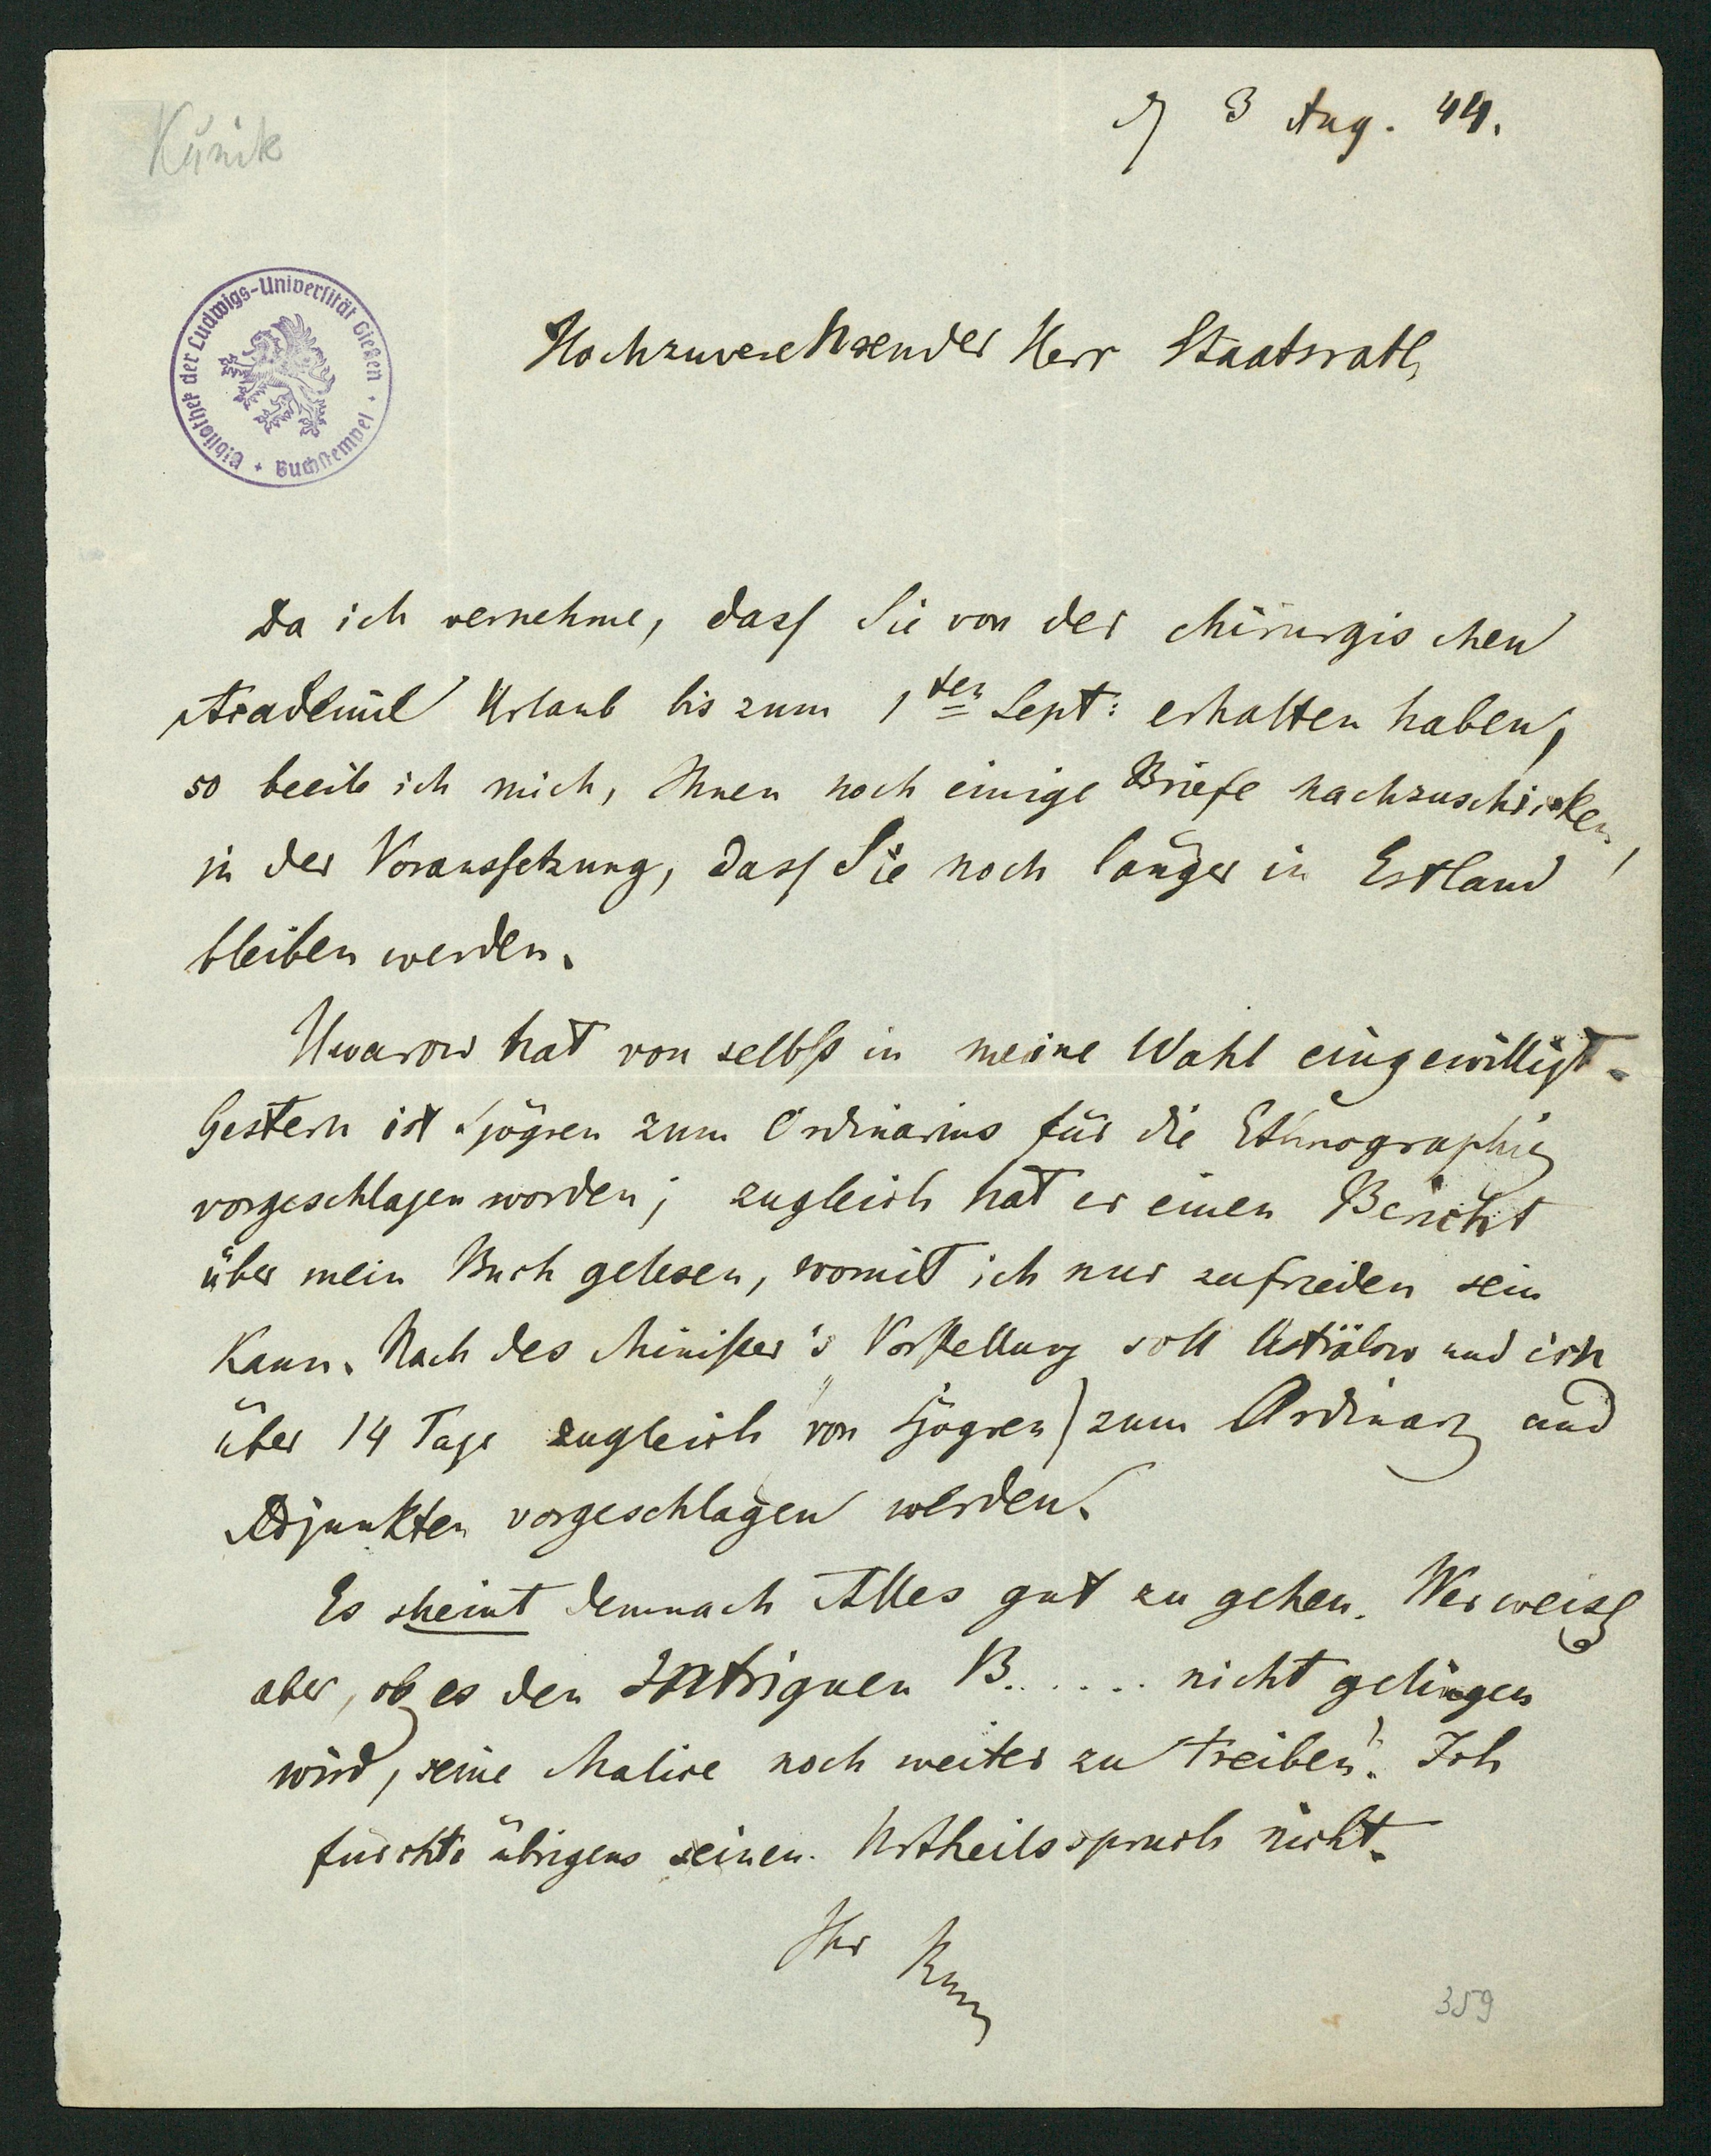 Kunik
d 3 Aug. 44.
Bibliothek der Ludwigs-Universität Gießen + Buchstempel +
Hochzuverehrender Herr Staatsrath,
Da ich vernehme, dass Sie von der chirurgischen
Academie Urlaub bis zum 1ten Sept: erhalten haben,
so beeile ich mich, Ihnen noch einige Briefe nachzuschicken,
in der Voraussetzung, dass Sie noch länger in Estland
bleiben werden.
Uwarow hat von selbst in meine Wahl eingewilligt.
Gestern ist Sjögren zum Ordinarius für die Ethnographie
vorgeschlagen worden; zugleich hat er einen Bericht
über mein Buch gelesen, womit ich nur zufrieden sein
kann. Nach des Minister's Vorstellung soll Usträlow und ich
über 14 Tage zugleich (von Sjögren) zum Ordinarius und
Adjunkten vorgeschlagen werden.
Es scheint demnach Alles gut zu gehen. Wer weiss
aber, ob es den Intriguen B...... nicht gelingen
wird, seine Malice noch weiter zu treiben? Ich
fürchte übrigens seinen Urtheilsspruch nicht.
Ihr Kun
359